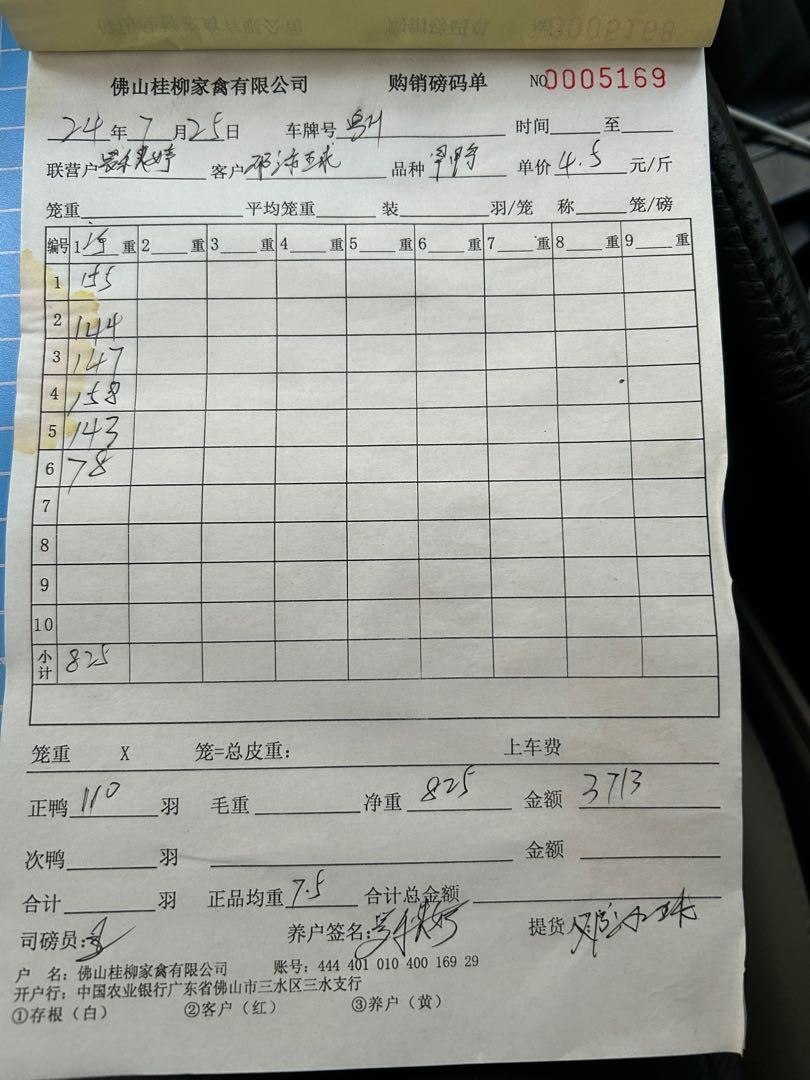 佛山桂柳家禽有限公司 购销磅码单 NO0005169
24年7月25日 车牌号 时间 至
联营户 客户 品种 单价4.5元/斤
笼重 平均笼重 装 羽/笼 称 笼/磅
编号 1 重 2 重 3 重 4 重 5 重 6 重 7 重 8 重 9 重
1 155
2 144
3 147
4 158
5 143
6 78
7
8
9
10
小计 825
笼重 X 笼=总皮重: 上车费
正鸭110羽 毛重 净重825 金额3713
次鸭 羽 金额
合计 羽 正品均重7.5 合计总金额
司磅员: 养户签名: 提货人
户 名: 佛山桂柳家禽有限公司 账号: 444 401 010 400 169 29
开户行: 中国农业银行广东省佛山市三水区三水支行
①存根(白) ②客户(红) ③养户(黄)